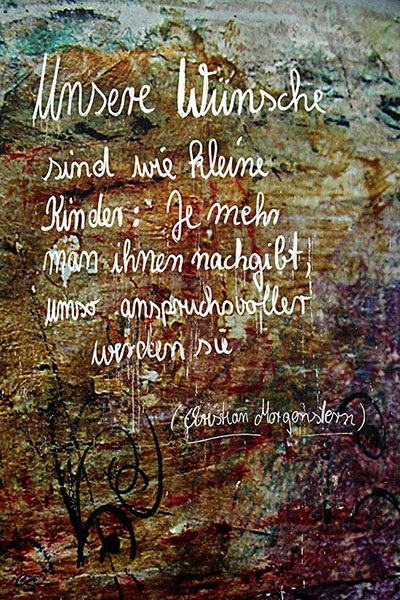 Unsere Wünsche
sind wie kleine
Kinder: Je mehr
man ihnen nachgibt,
umso anspruchsvoller
werden sie
(Christian Morgenstern)